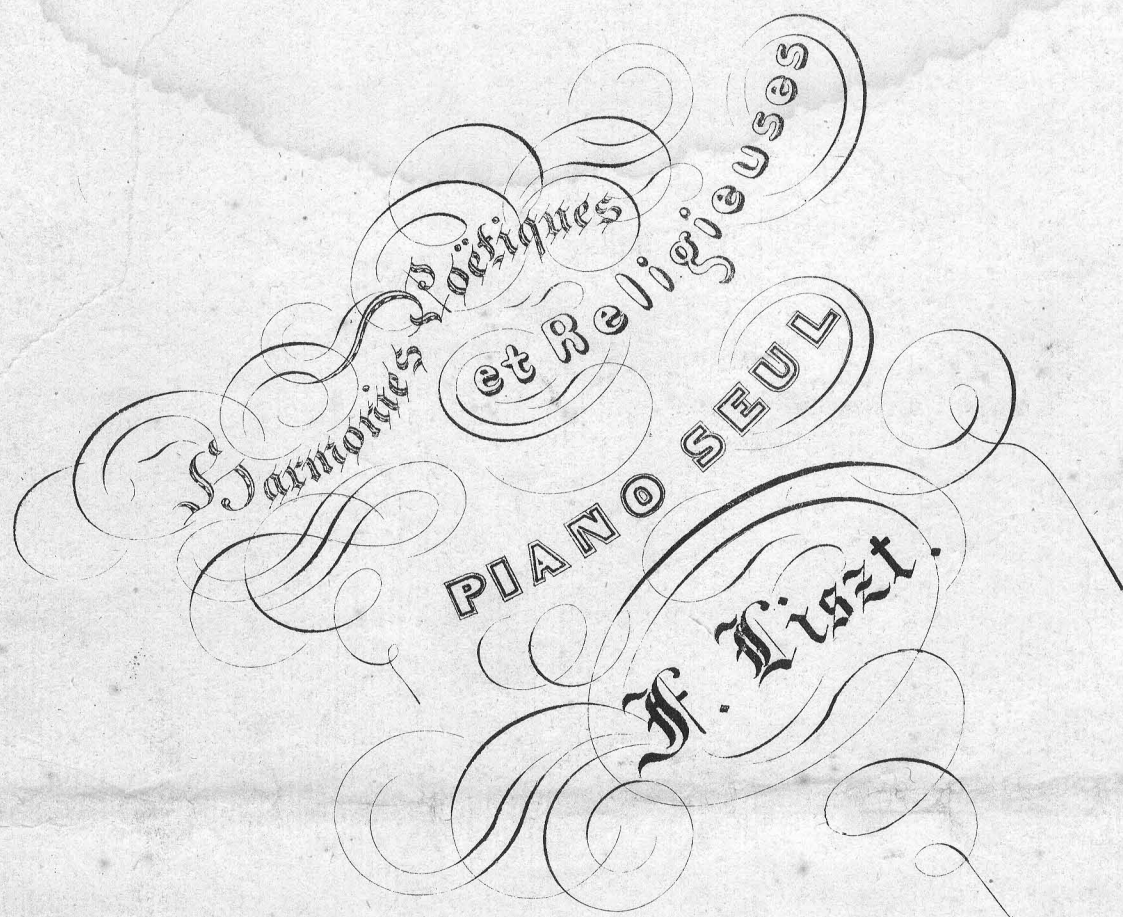 Harmonies Poëtiques
et Religieuses
PIANO SEUL
F. Liszt.